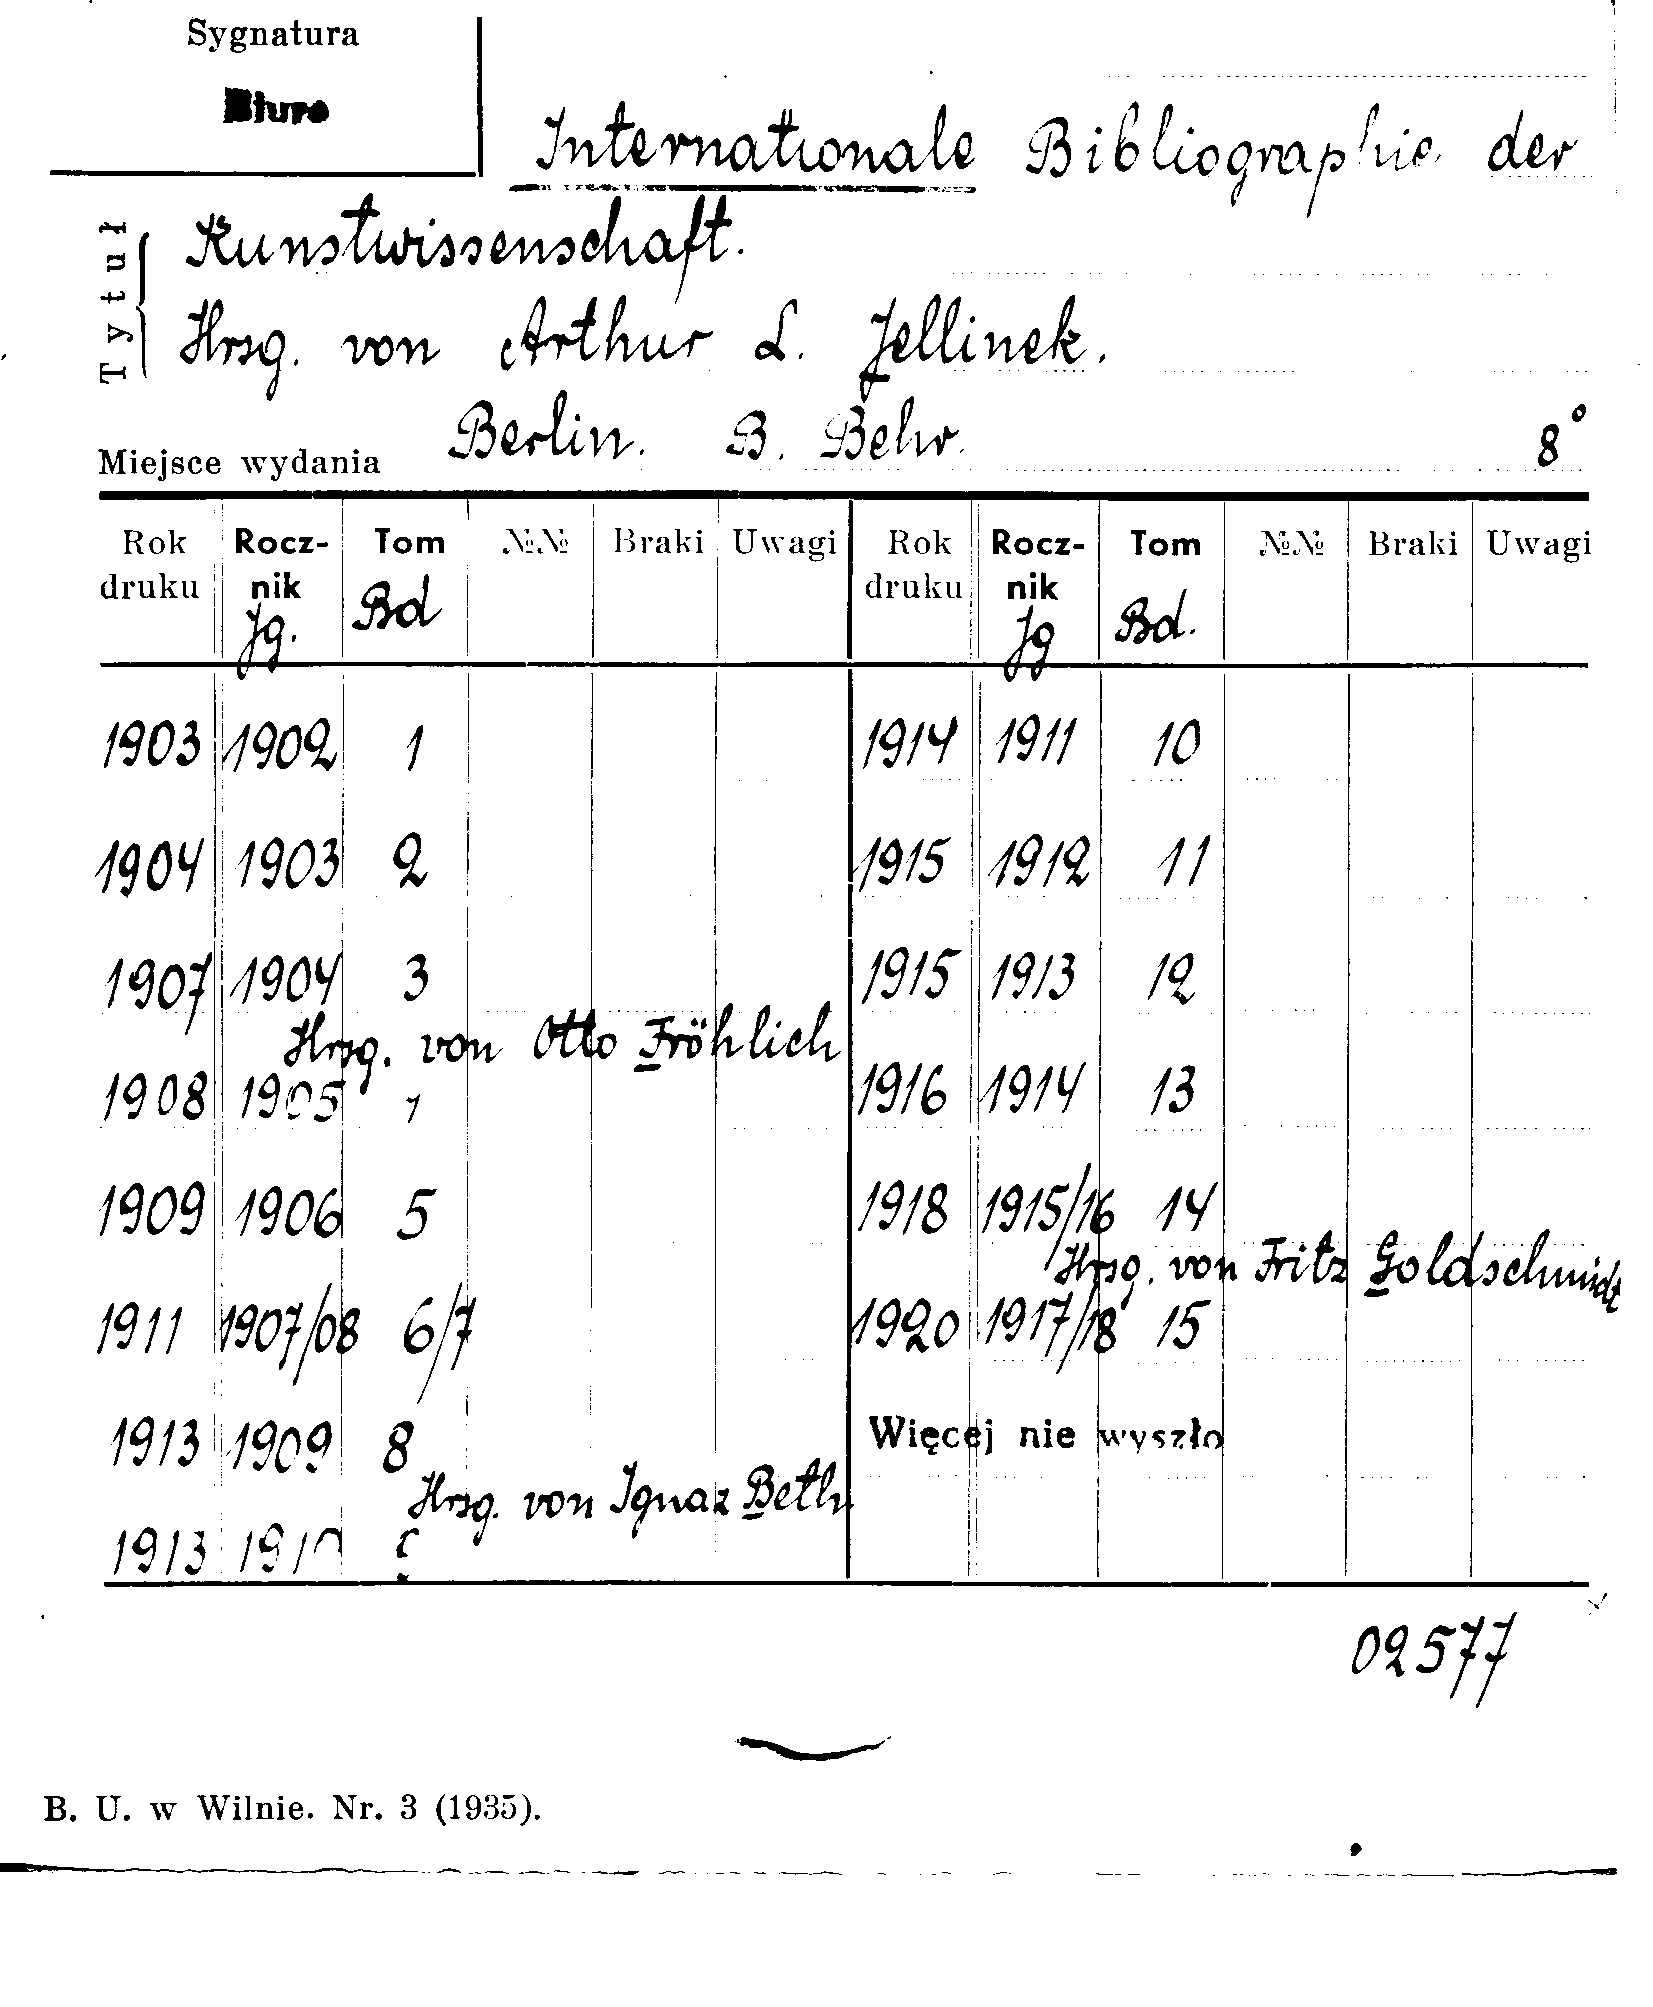 Sygnatura
Biuro
Internationale Bibliographie der
Tytuł
Kunstwissenschaft.
Hrsg. von Arthur L. Jellinek.
Miejsce wydania Berlin. B. Behr. 8°
Rok druku Rocznik Jg. Tom Bd №№ Braki Uwagi Rok druku Rocznik Jg Tom Bd. №№ Braki Uwagi
1903 1902 1 1914 1911 10
1904 1903 2 1915 1912 11
1907 1904 3 1915 1913 12
Hrsg. von Otto Fröhlich
1908 1905 1916 1914 13
1909 1906 5 1918 1915/16 14
Hrsg. von Fritz Goldschmidt
1911 1907/08 6/7 1920 1917/18 15
1913 1909 8 Więcej nie wyszło
Hrsg. von Ignaz Beth
1913 1910
02577
B. U. w Wilnie. Nr. 3 (1935).